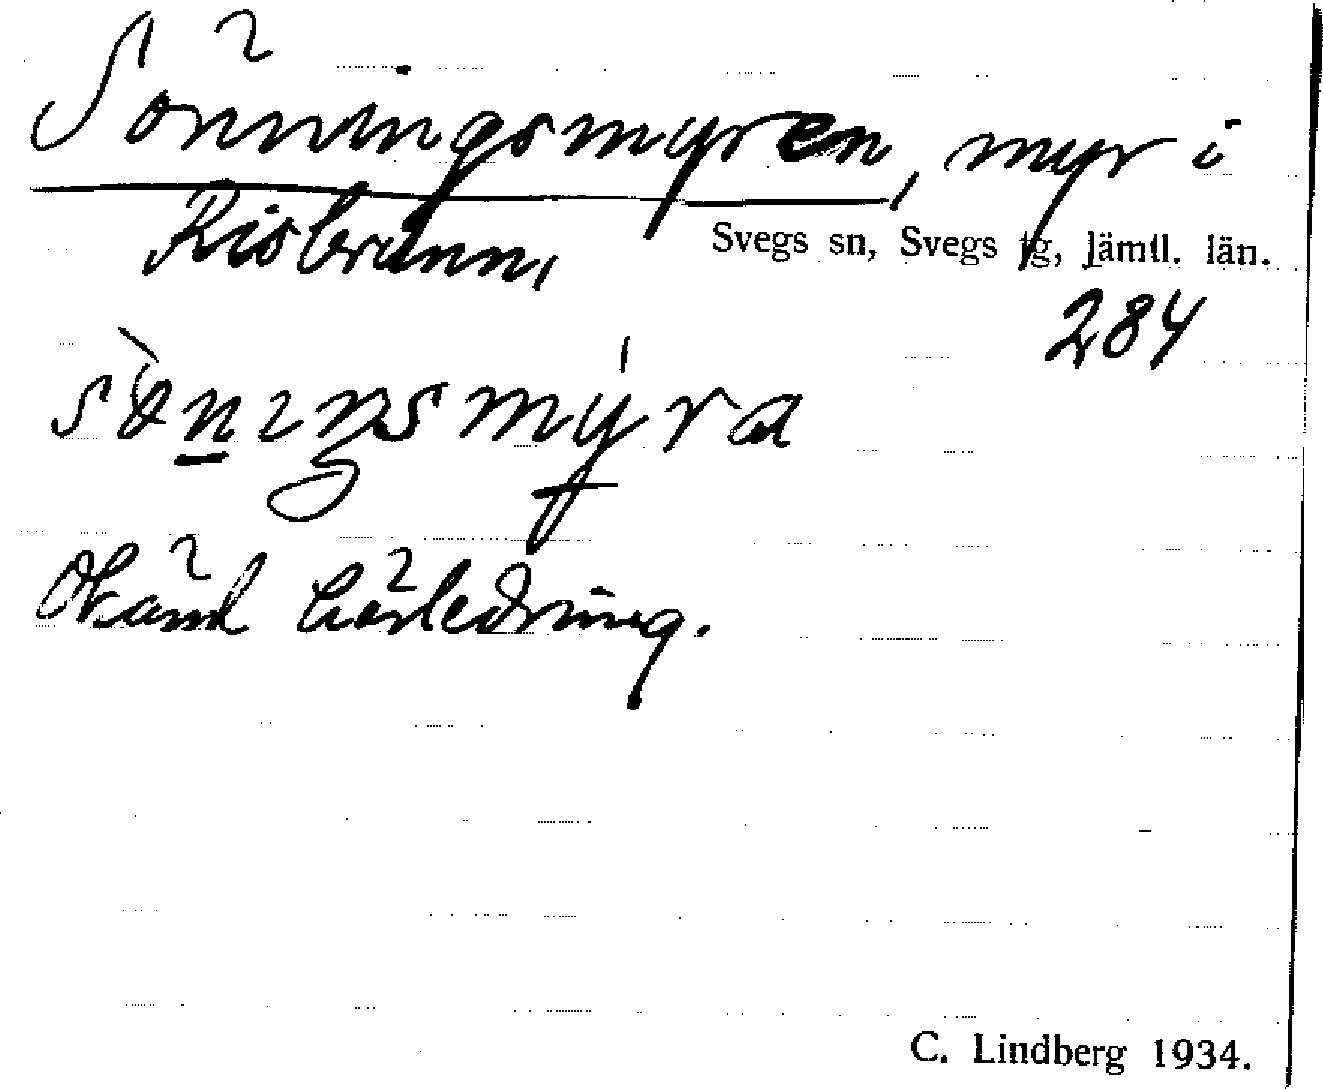 Sönningsmyren, myr i
Risbrunn,
Svegs sn, Svegs tg, Jämtl. län.
284
Okänd härledning.
C. Lindberg 1934.